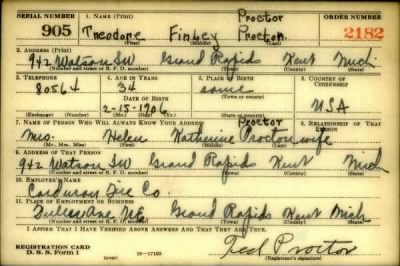 SERIAL NUMBER 1. NAME (Print) ORDER NUMBER
Proctor
905 Theodore Finley Procton 2182
(First) (Middle) (Last)
2. ADDRESS (Print)
942 Watson SW Grand Rapids Kent Mich
(Number and street or R. F. D. number) (Town) (County) (State)
3. TELEPHONE 4. AGE IN YEARS 5. PLACE OF BIRTH 6. COUNTRY OF CITIZENSHIP
80564 34 same
DATE OF BIRTH (Town or county)
2-15-1906 USA
(Exchange) (Number) (Mo.) (Day) (Yr.) (State or country)
7. NAME OF PERSON WHO WILL ALWAYS KNOW YOUR ADDRESS 8. RELATIONSHIP OF THAT PERSON
Proctor
Mrs. Helen Katherine Procton wife
(Mr., Mrs., Miss) (First) (Middle) (Last)
9. ADDRESS OF THAT PERSON
942 Watson SW Grand Rapids Kent Mich
(Number and street or R. F. D. number) (Town) (County) (State)
10. EMPLOYER'S NAME
Corduroy Tire Co.
11. PLACE OF EMPLOYMENT OR BUSINESS
Fuller Ave NE Grand Rapids Kent Mich
(Number and street or R. F. D. number) (Town) (County) (State)
I AFFIRM THAT I HAVE VERIFIED ABOVE ANSWERS AND THAT THEY ARE TRUE.
REGISTRATION CARD
D. S. S. Form 1 Ted Proctor
(Registrant's signature)